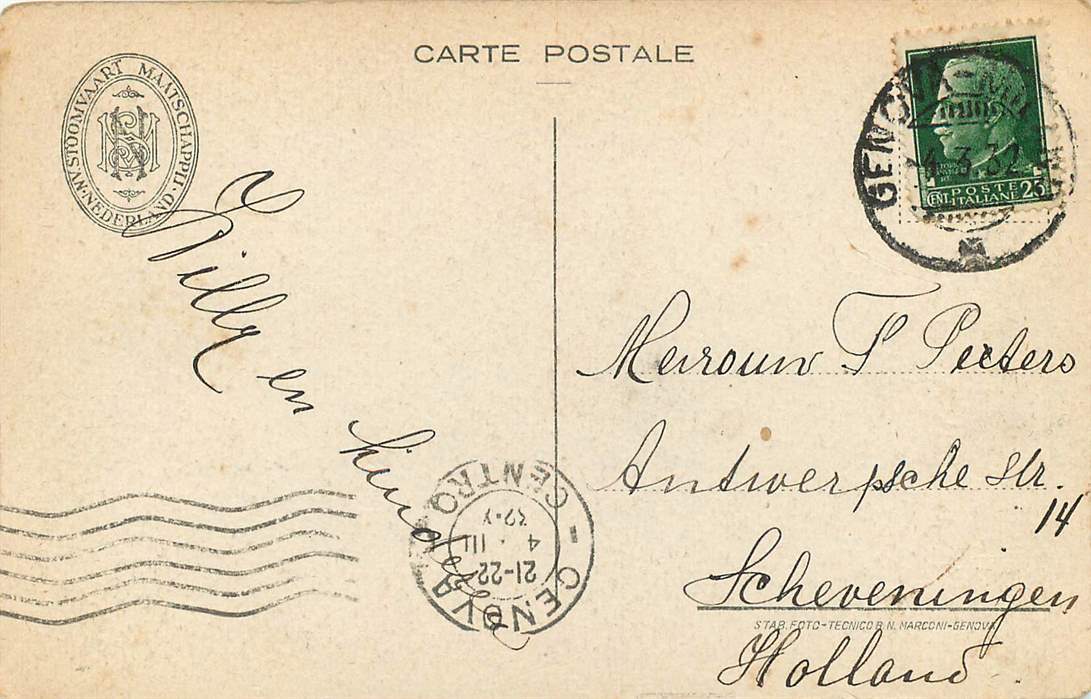 CARTE POSTALE
N.V. STOOMVAART MAATSCHAPPIJ · NEDERLAND ·
GENOVA
4.3.32
CENT. POSTE ITALIANE 25
Willy en
kinderen
Mevrouw F Peeters
Antwerpsche str.
14
Scheveningen
STAB. FOTO-TECNICO B. N. MARCONI-GENOVA
Holland.
GENOVA - CENTRO -
21-22
4 · III
32·X